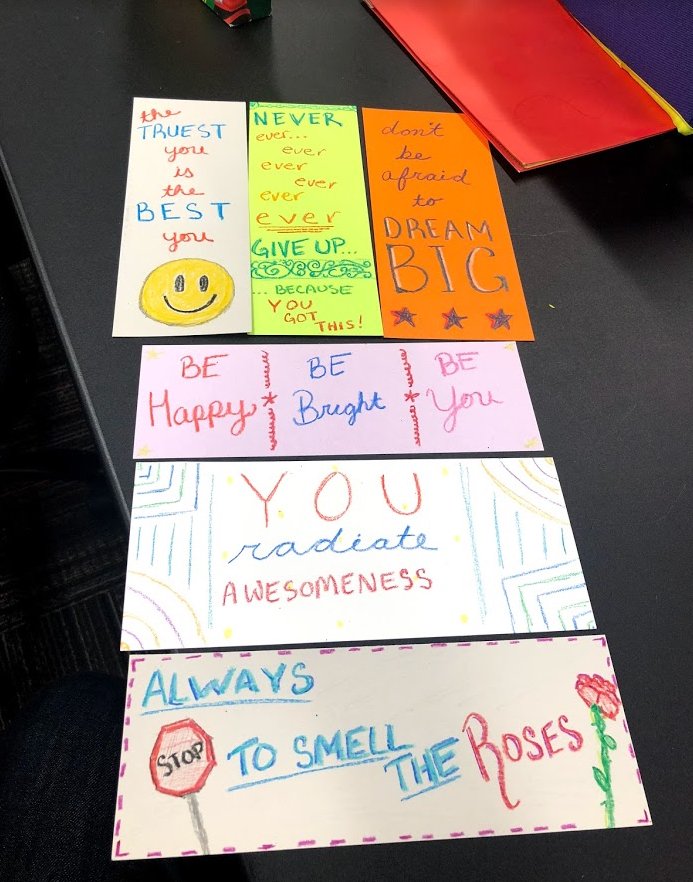 the
TRUEST
you
is
the
BEST
you
NEVER
ever...
ever
ever
ever
ever
ever
GIVE UP...
...BECAUSE
YOU
GOT
THIS!
don't
be
afraid
to
DREAM
BIG
BE
Happy
BE
Bright
BE
You
YOU
radiate
AWESOMENESS
ALWAYS
STOP TO SMELL THE ROSES